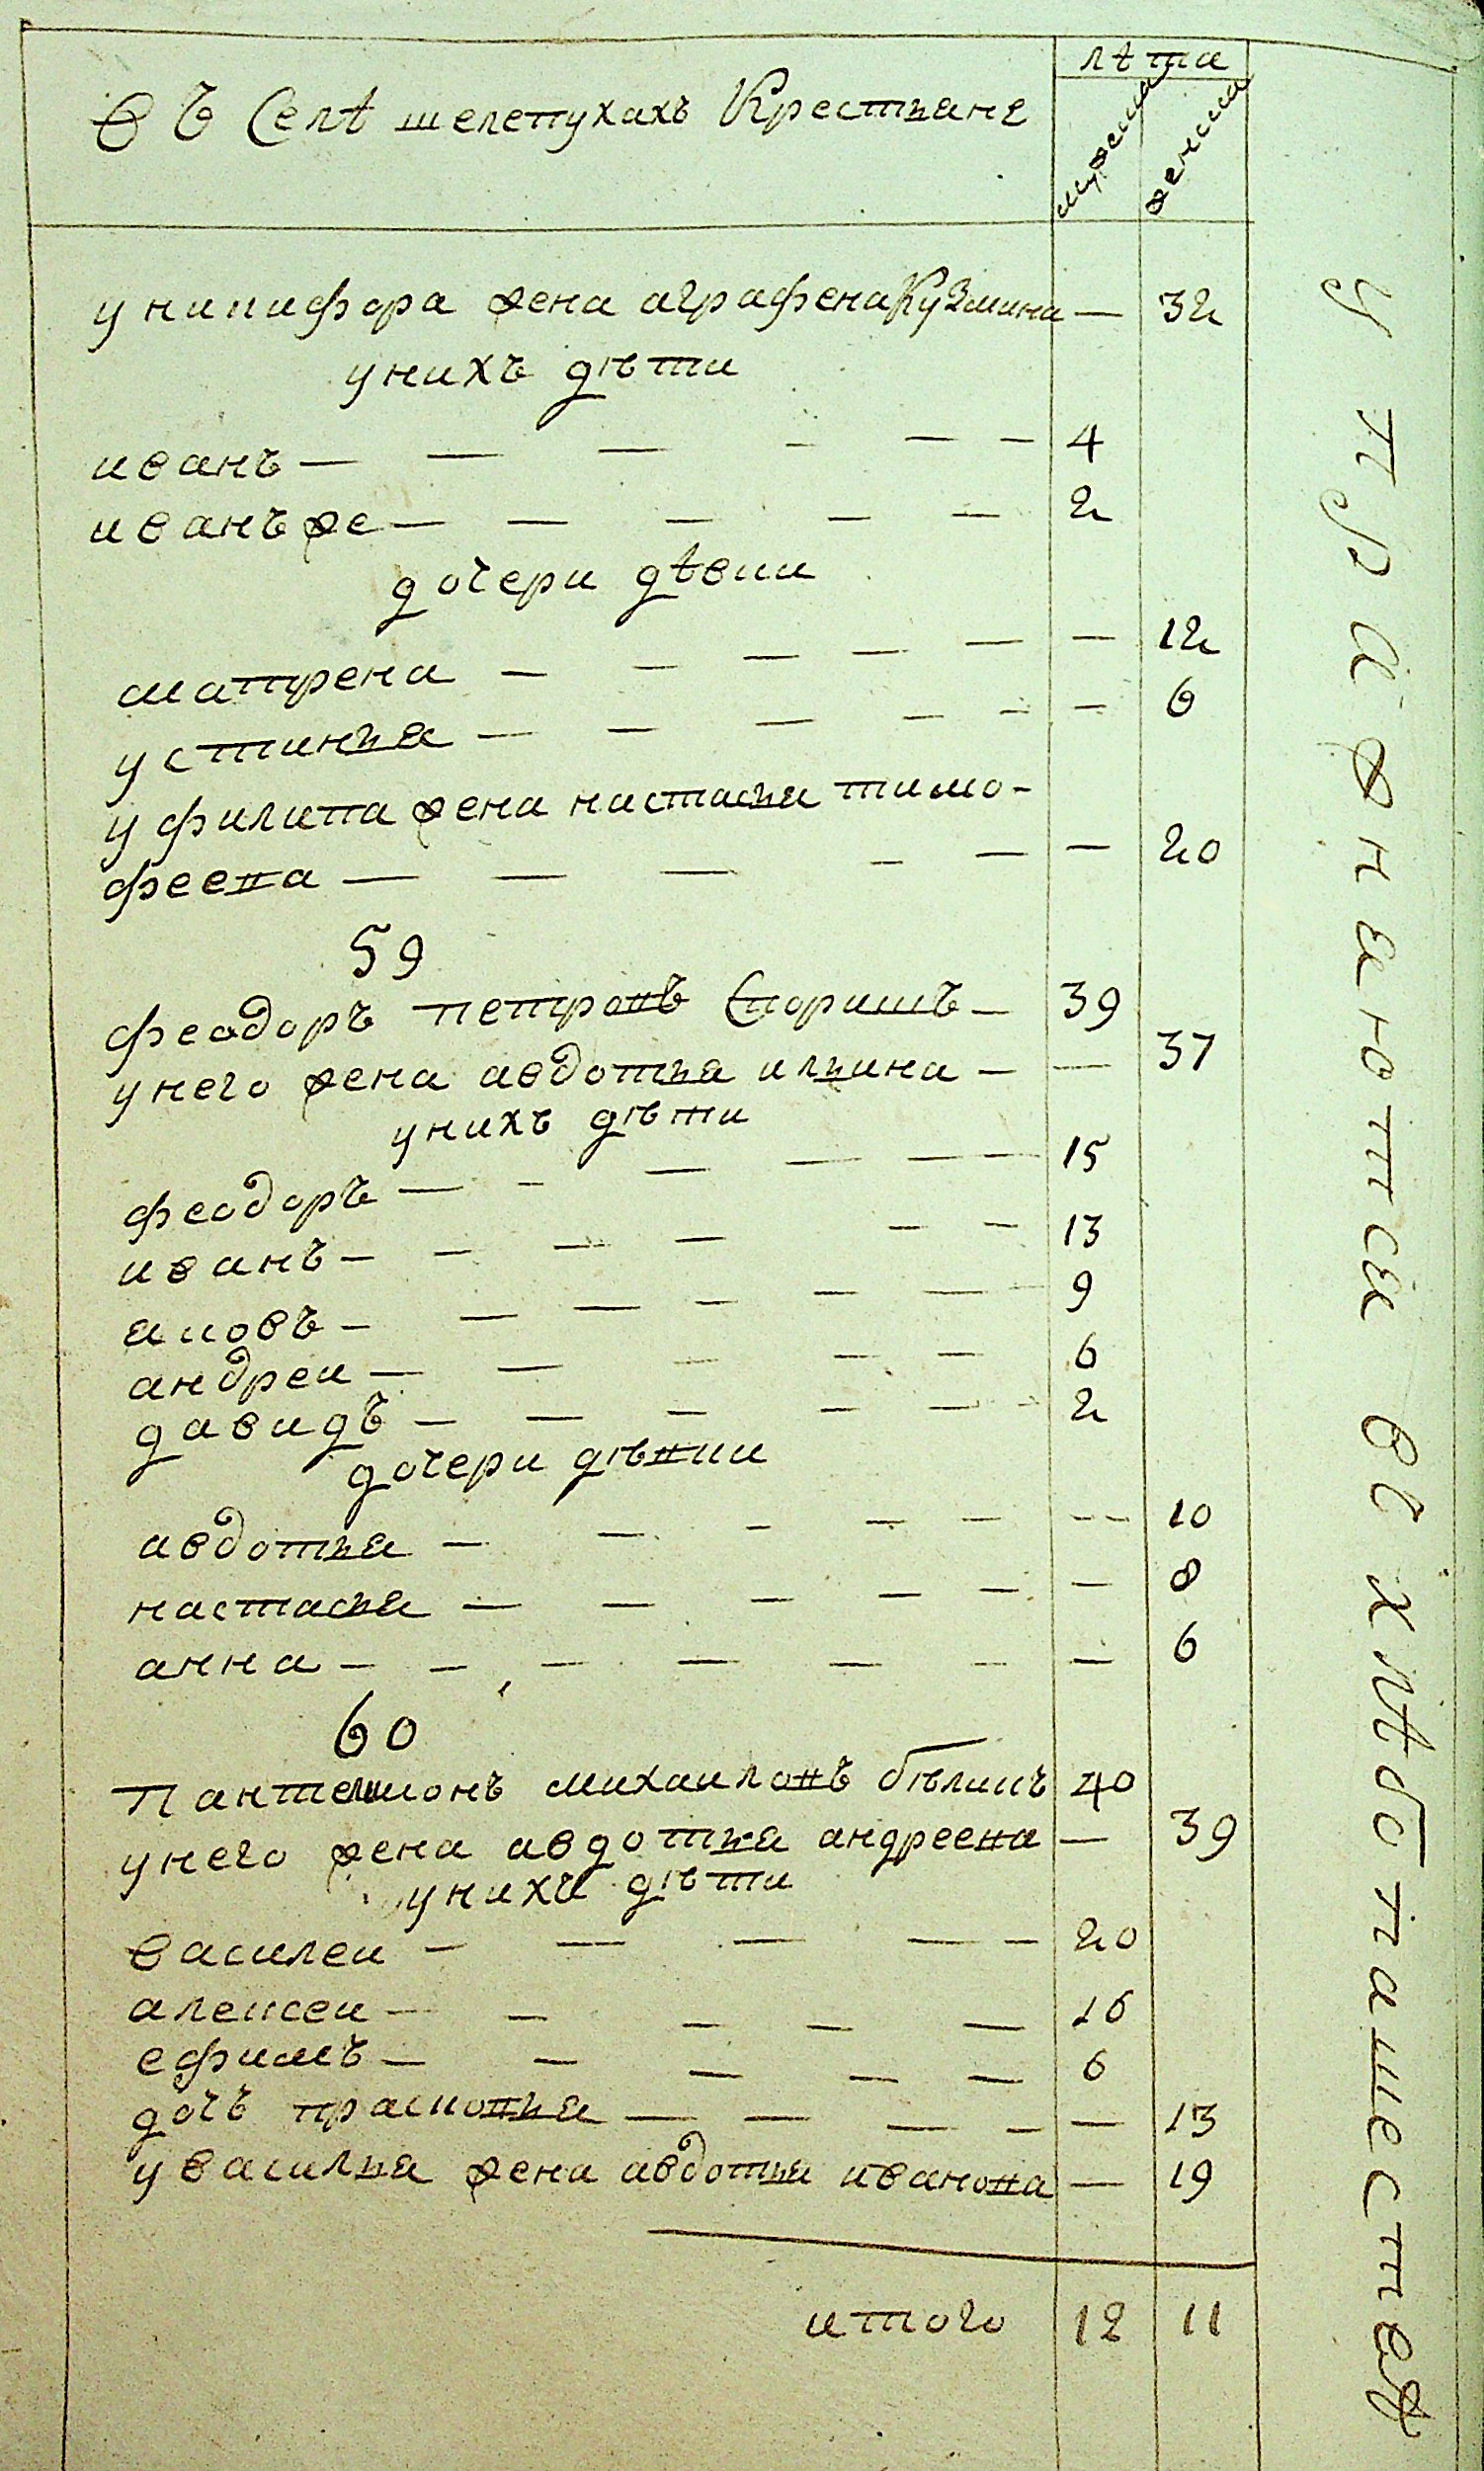 лѣта
Въ Селѣ шелепухахъ Крестьяне
мужеска
женска
у никифора жена аграфена Кузмина — 32
у нихъ дѣти
иванъ — 4
иванъ же — 2
дочери дѣвки
матрена — 12
устинья — 6
у филипа жена настасья тимо-
феева — 20
59
феодоръ петровъ Скоришъ — 39
у него жена авдотья ильина — 37
у нихъ дѣти
феодоръ — 15
иванъ — 13
яковъ — 9
андреи — 6
давидъ — 2
дочери дѣвки
авдотья — 10
настасья — 8
анна — 6
60
Пантелимонъ михаиловъ бѣликъ 40
у него жена авдотья андреева — 39
у нихъ дѣти
василеи — 20
алексеи — 16
ефимъ — 6
дочь прасковья — 13
у василья жена авдотья иванова — 19
итого 12 11
упражняются въ хлѣбопашествѣ